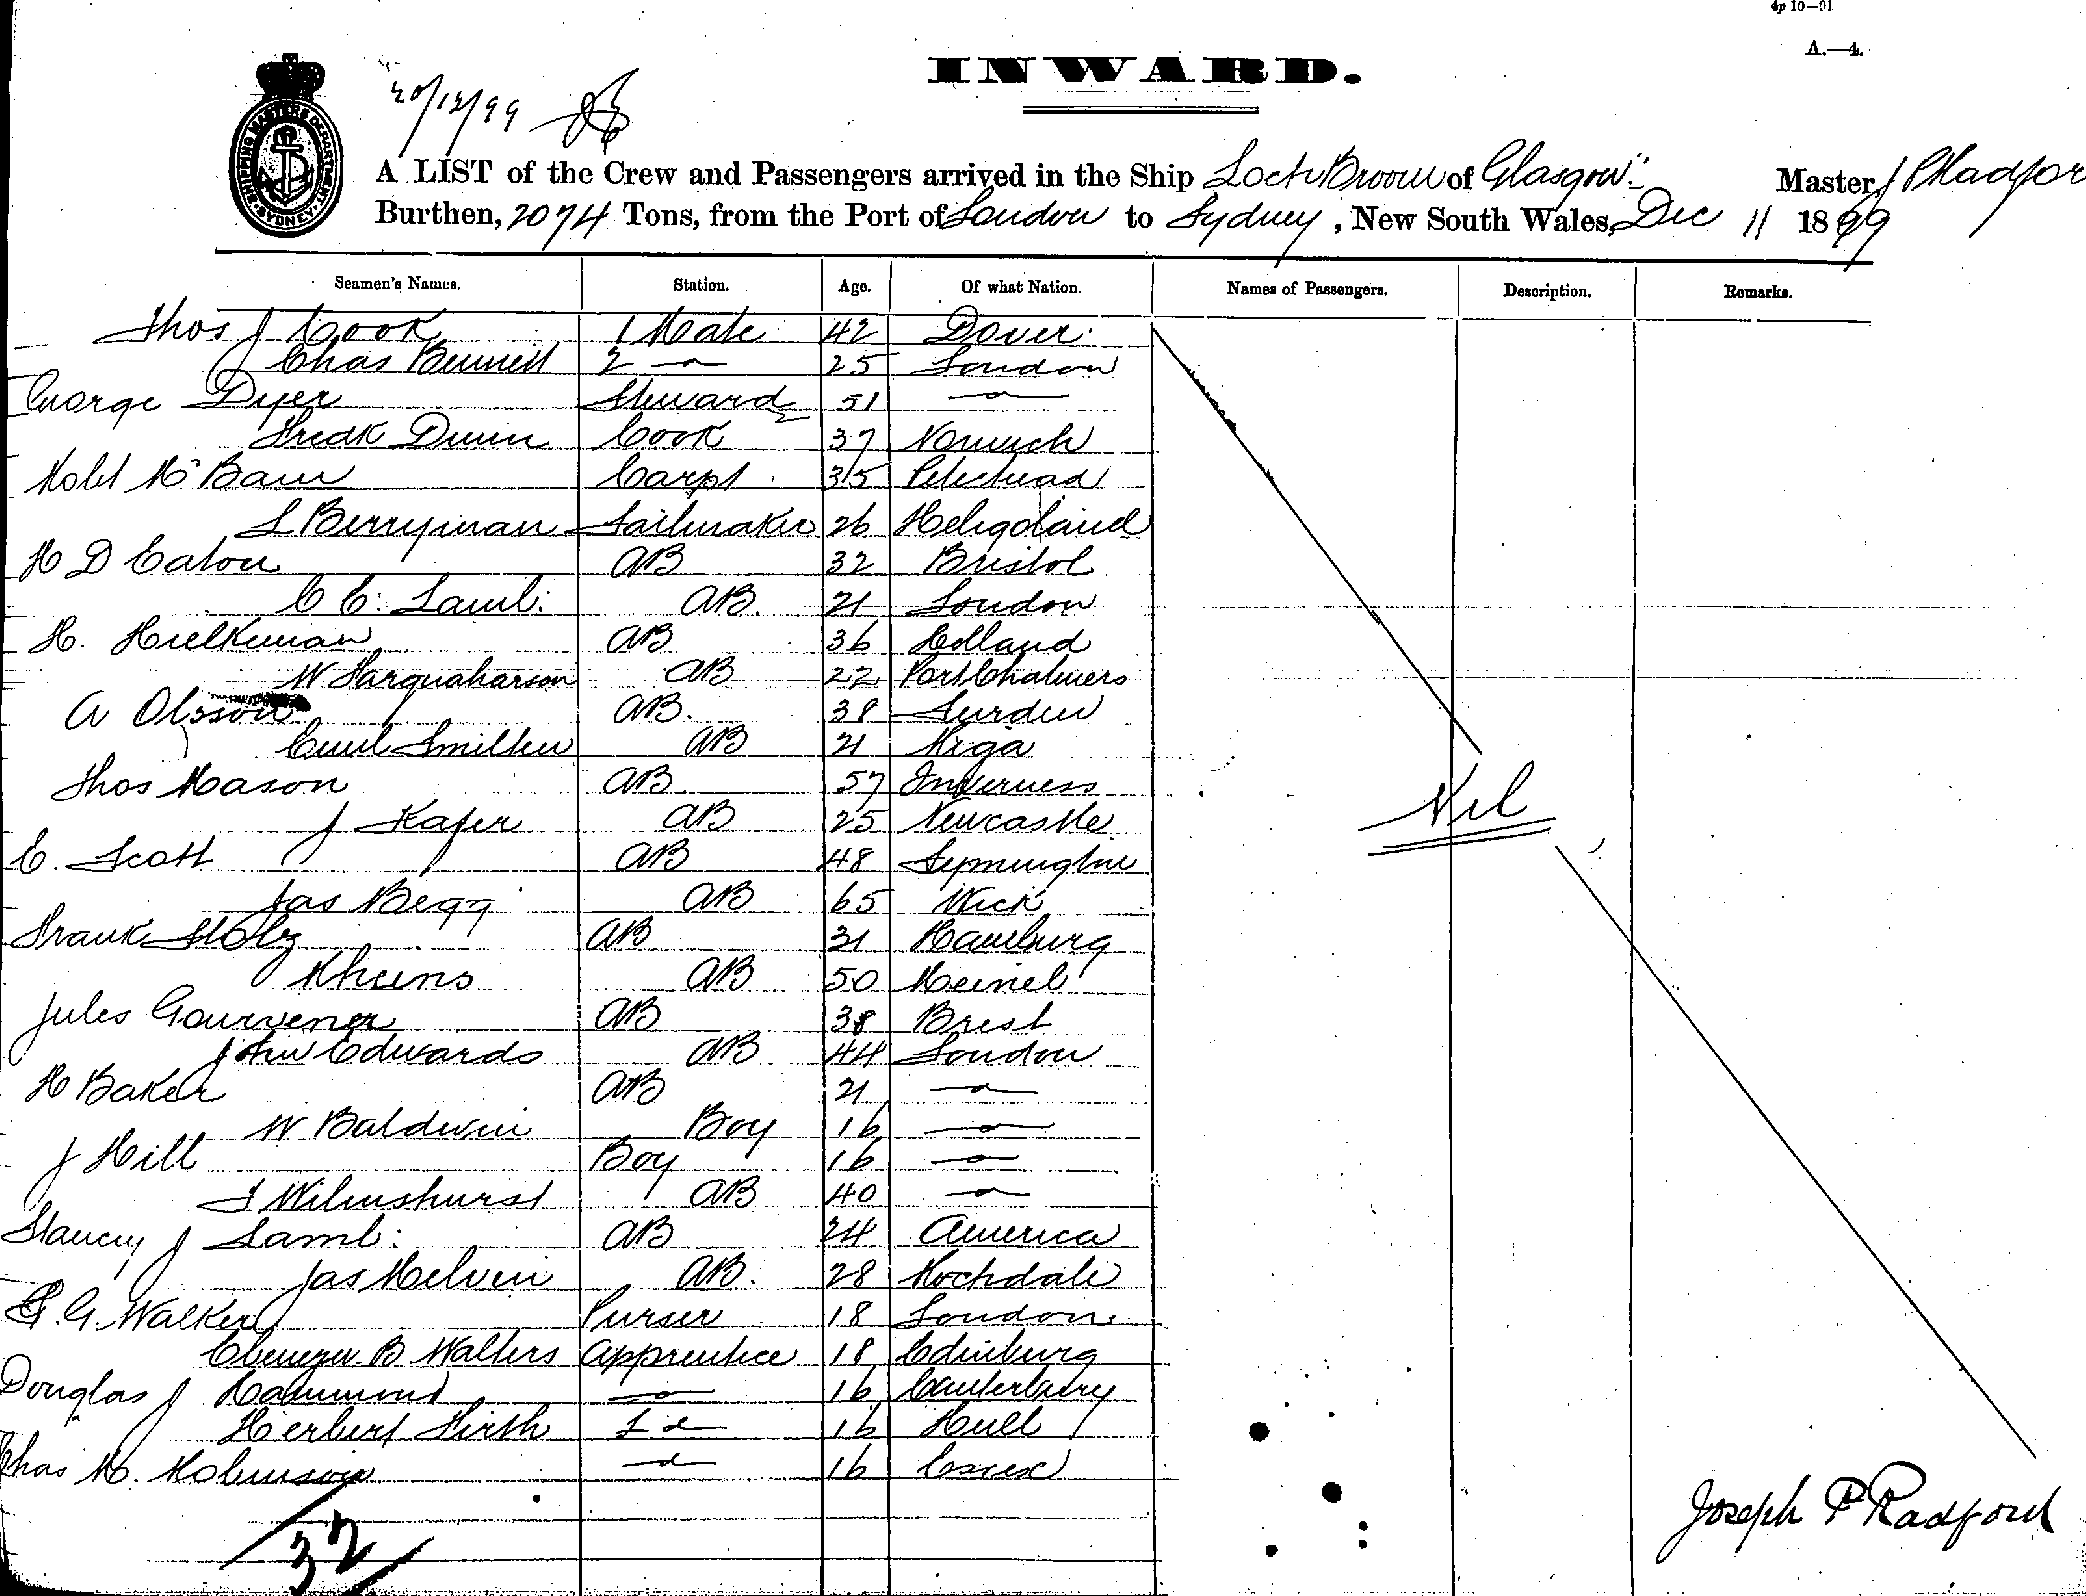 4p 10-91
A.—4.
INWARD.
20/12/99
SHIPPING MASTERS DEPARTMENT SYDNEY
A LIST of the Crew and Passengers arrived in the Ship Loch Broom of Glasgow Master, J P Radfor
Burthen, 2074 Tons, from the Port of London to Sydney, New South Wales, Dec 11 1899
Seamen's Names. Station. Age. Of what Nation. Names of Passengers. Description. Remarks.
Thos J Cook 1 Mate 42 Dover
Chas Bennett 2 — 25 London
George Dyer Steward 51 —
Fredk Dunn Cook 37 Norwich
Robt McBain Carpt. 35 Peterhead
L Berryman Sailmaker 26 Heligoland
H D Eaton AB 32 Bristol
C E. Lamb. AB. 21 London
H. AB 36 Holland
W Farquaharson AB 22 Port Chalmers
A Olsson AB. 38 Sweden
Smith AB 21 Riga
Thos Mason AB 57 Inverness
J Kafer AB 25 Newcastle
Nil
E. Scott AB 48 Symington
Jas Begg AB 65 Wick
Frank Stolz AB 31 Hamburg
AB 50 Memel
Jules AB 38 Brest
John Edwards AB 44 London
H Baker AB 21 —
W Baldwin Boy 16 —
J Hill Boy 16 —
J Wilmshurst AB 40 —
J Lamb. AB 24 America
Jas Melvin AB. 28 Rochdale
G. Walker Purser 18 London
Ebenezer B Walters Apprentice 18 Edinburg
Douglas J Hammond — 16 Canterbury
Herbert Firth 16 Hull
Chas R. Robinson — 16 Essex
32
Joseph P Radford